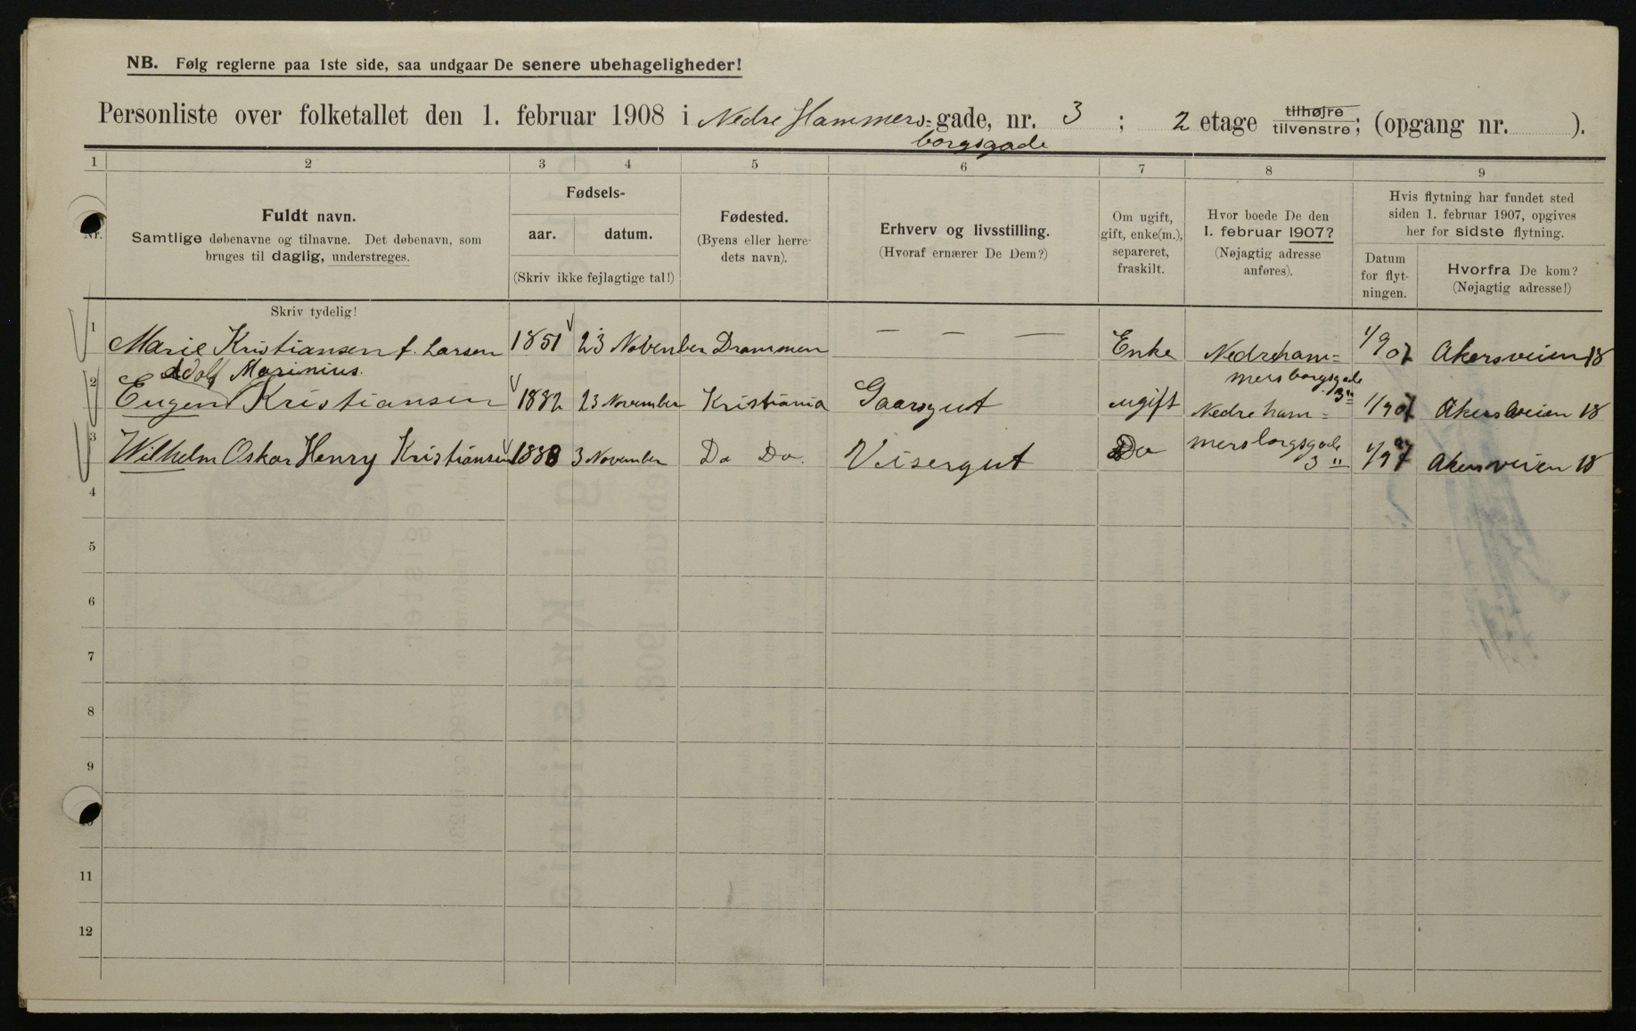 NB. Følg reglerne paa 1ste side, saa undgaar De senere ubehageligheder!
Personliste over folketallet den 1. februar 1908 i Nedre Hammers=gade, nr. 3 ; 2 etage tilhøjre tilvenstre; (opgang nr. ).
borgsgade
1 2 3 4 5 6 7 8 9
Nr.
Fuldt navn.
Samtlige døbenavne og tilnavne. Det døbenavn, som
bruges til daglig, understreges.
Fødsels-
aar. datum.
(Skriv ikke fejlagtige tal!)
Fødested.
(Byens eller herre-
dets navn).
Erhverv og livsstilling.
(Hvoraf ernærer De Dem?)
Om ugift,
gift, enke(m.),
separeret,
fraskilt.
Hvor boede De den
1. februar 1907?
(Nøjagtig adresse
anføres).
Hvis flytning har fundet sted
siden 1. februar 1907, opgives
her for sidste flytning.
Datum
for flyt-
ningen.
Hvorfra De kom?
(Nøjagtig adresse!)
Skriv tydelig!
1 Marie Kristiansen f. Larsen 1851 23 November Drammen — — — Enke Nedreham= 1/9 07 Akersveien 18
mersborgsgade
3"
Adolf Marinius.
2 Eugen Kristiansen 1882 23 November Kristiania Gaarsgut ugift Nedreham= 1/9 07 Akersveien 18
mersborgsgade
3"
3 Wilhelm Oskar Henry Kristiansen 1888 3 November Do Do. Visergut Do 1/9 7 Akersveien 18
4
5
6
7
8
9
11
12